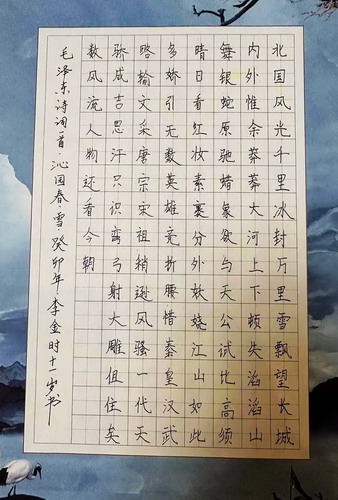 北国风光千里冰封万里雪飘望长城
内外惟余莽莽大河上下顿失滔滔山
舞银蛇原驰蜡象欲与天公试比高须
晴日看红妆素裹分外妖娆江山如此
多娇引无数英雄竞折腰惜秦皇汉武
略输文采唐宗宋祖稍逊风骚一代天
骄成吉思汗只识弯弓射大雕俱往矣
数风流人物还看今朝
毛泽东诗词一首·沁园春·雪 癸卯年 李金时十一岁书